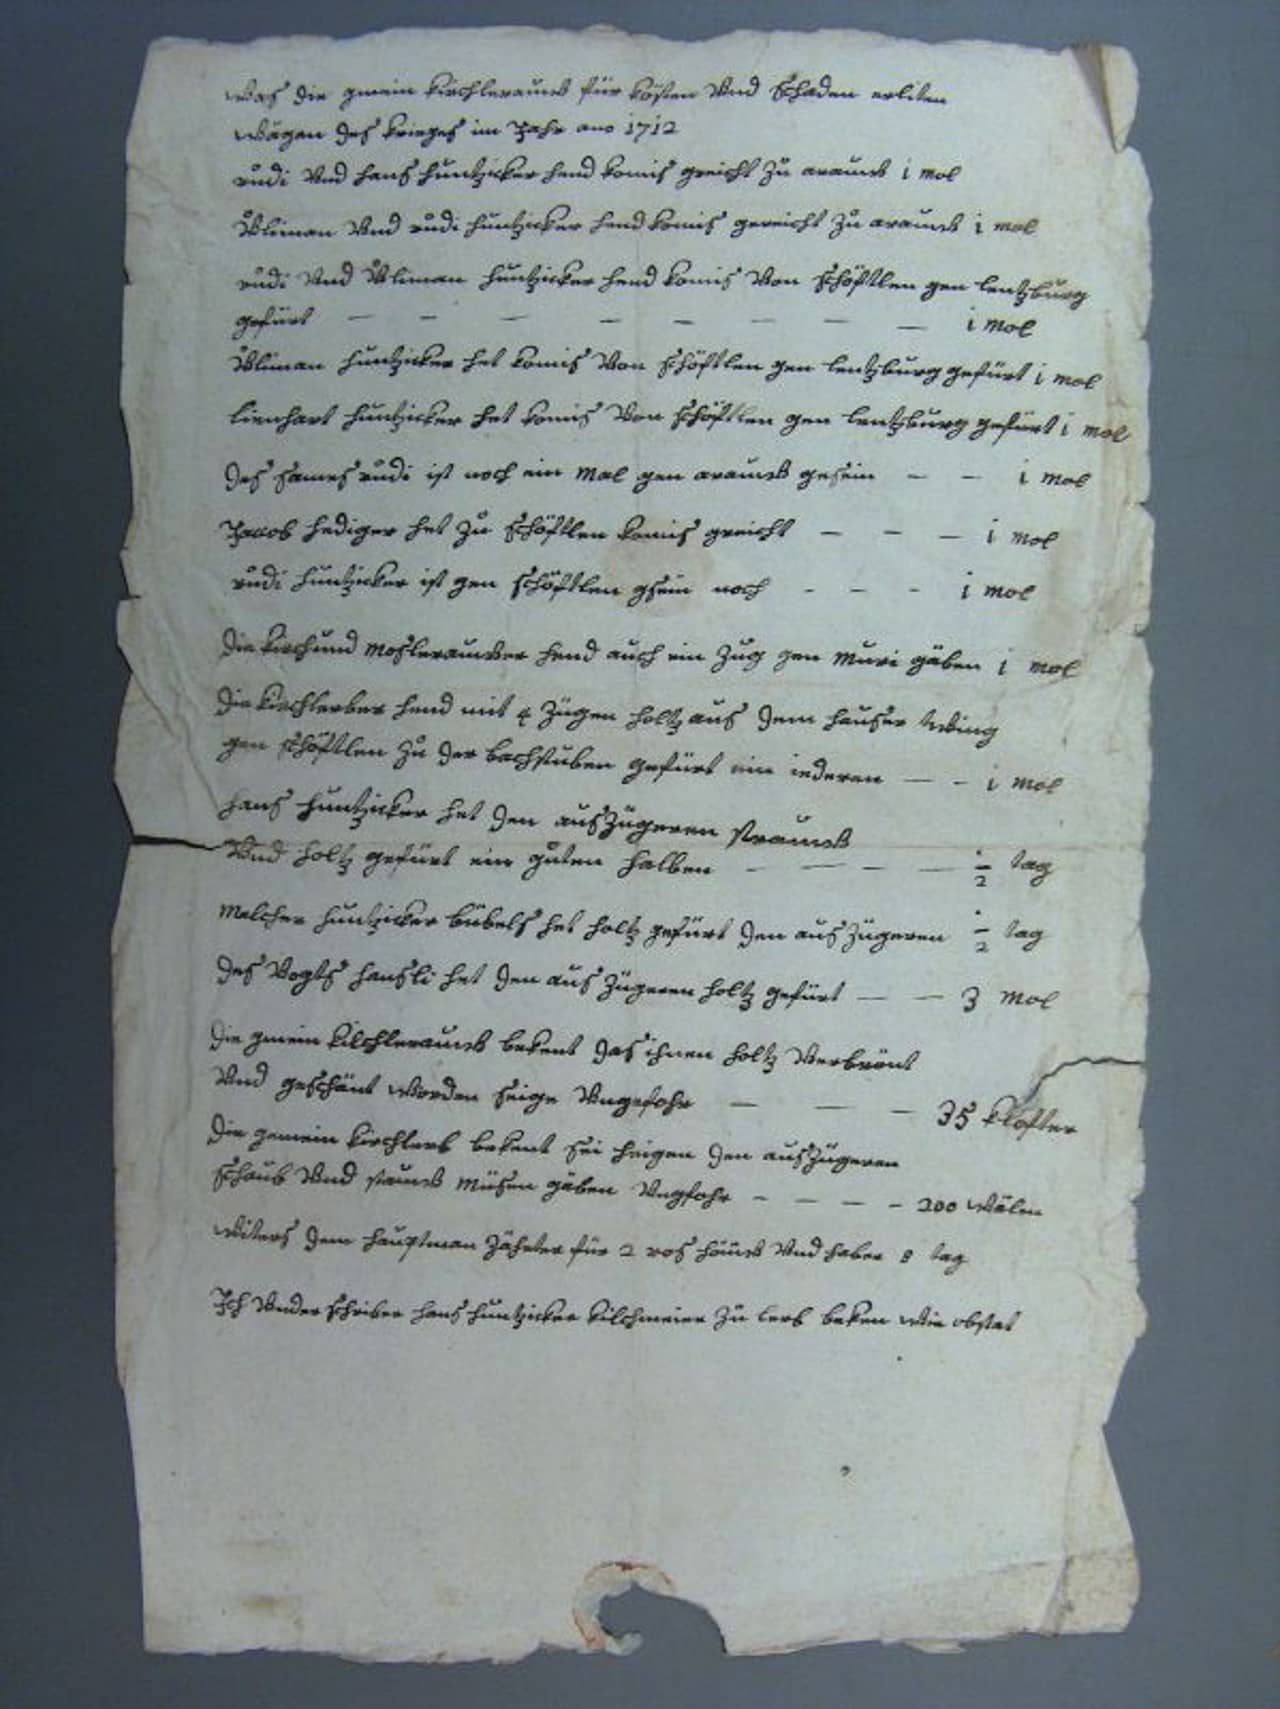 was die gmein kirchlerauw für kösten Vnd schaden erliten
wägen des krieges im Jahr ano 1712
rudi Vnd hans huntzicker hend komis greicht zu arauw i mol
Vliman Vnd rudi huntzicker hend komis gereicht zu arauw i mol
rudi Vnd Vliman huntzicker hend komis Von schöftlen gen lentzburg
gefürt — — — — — — — — i mol
Vliman huntzicker het komis Von schöftlen gen lentzburg gefürt i mol
lienhart huntzicker het komis Von schöftlen gen lentzburg gefürt i mol
des sames rudi ist noch ein mal gen arauw gesein — — i mol
Jacob hediger het zu schöftlen komis greicht — — — i mol
rudi huntzicker ist gen schöftlen gsein noch - - - i mol
die kirch und moslerauwer hend auch ein zug gen muri gäben i mol
die kirchlerber hend mit 4 zügen holtz aus dem hauser twing
gen schöftlen zu der bachstuben gefürt ein iederen — - i mol
hans huntzicker het den auszügeren strauw
Vnd holtz gefürt ein guten halben — — — — ½ tag
melcher huntzicker bübels het holtz gefürt den auszügeren ½ tag
des Vogts hansli het den auszügeren holtz gefürt — — 3 mol
die gmein kilchlerauw bekent das ihnen holtz Verbrönt
Vnd geschänt worden seige Vngefohr — — — 35 klofter
die gemein kirchlerb bekent sei heigen den auszügeren
schaub Vnd strauw müsen gäben Vngfohr - — — - 200 wälen
witers dem hauptman zähnter für 2 ros höüw Vnd haber 8 tag
Ich Vnderschriber hans huntzicker kilchmeier zu lerb beken wie obstat